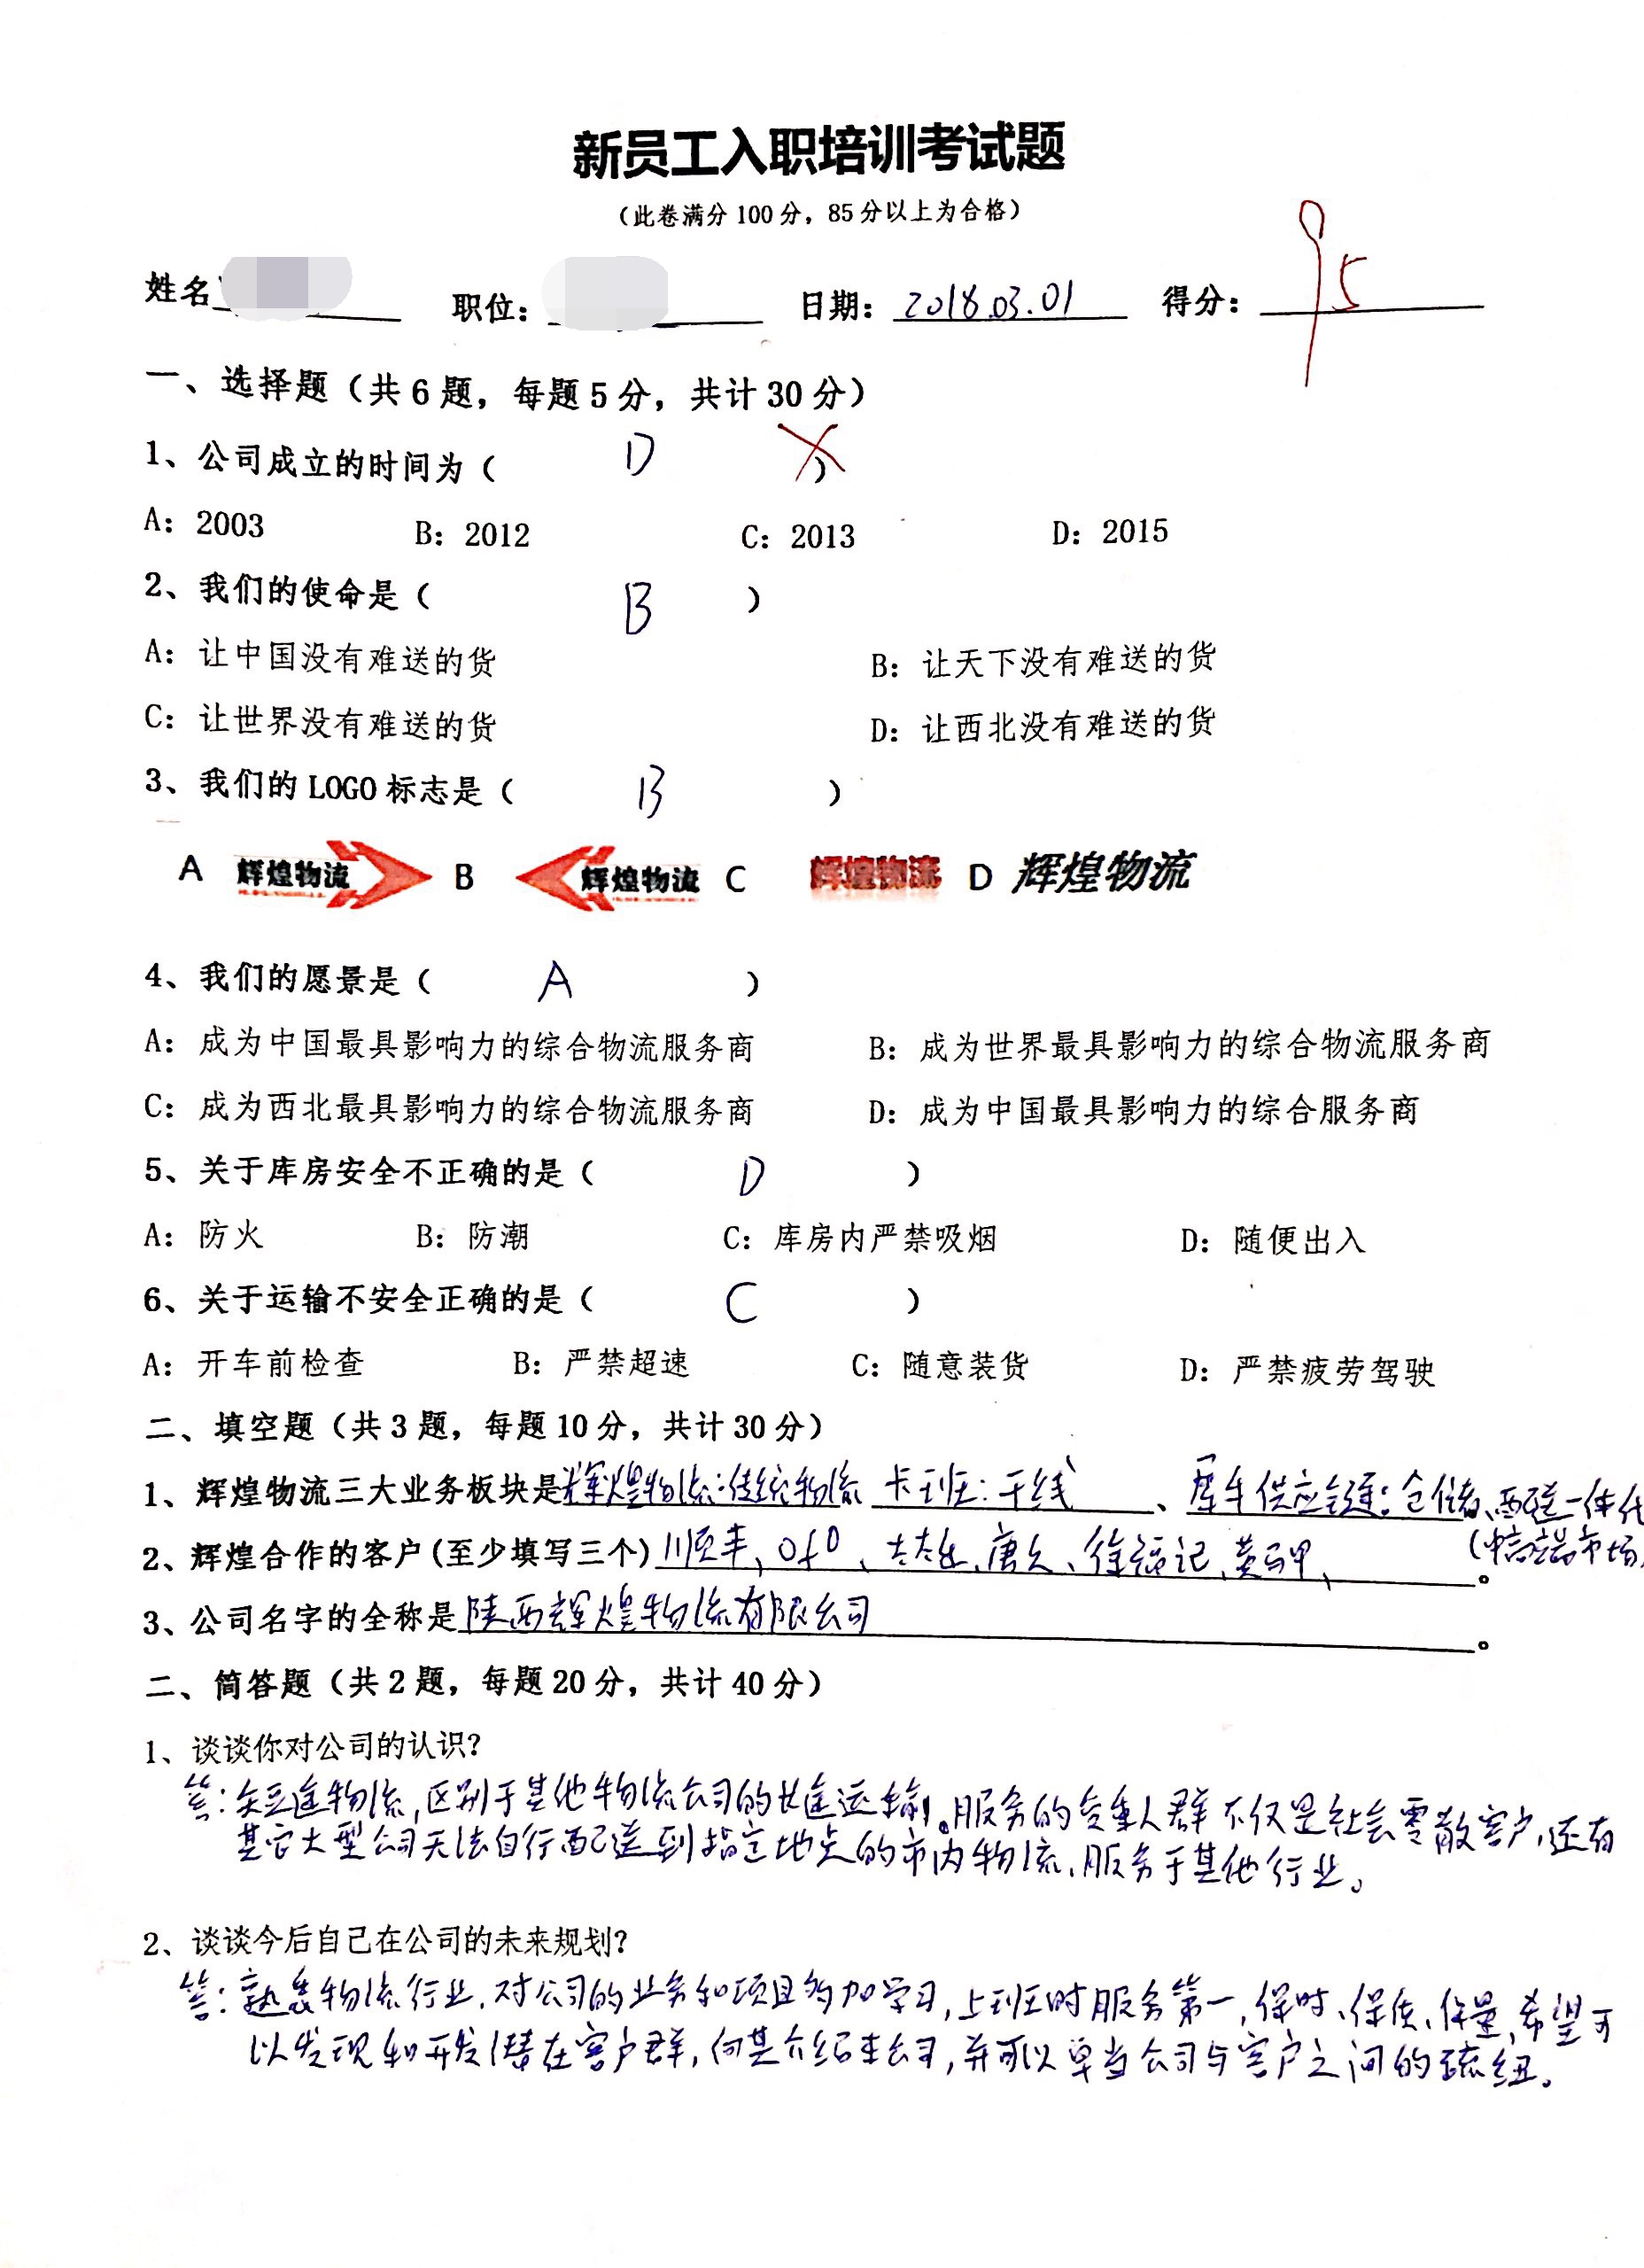 新员工入职培训考试题
（此卷满分100分，85分以上为合格）
姓名 职位： 日期：2018.03.01 得分：95
一、选择题（共6题，每题5分，共计30分）
1、公司成立的时间为（ D ）
A：2003 B：2012 C：2013 D：2015
2、我们的使命是（ B ）
A：让中国没有难送的货 B：让天下没有难送的货
C：让世界没有难送的货 D：让西北没有难送的货
3、我们的LOGO标志是（ B ）
A 辉煌物流 B 辉煌物流 C 辉煌物流 D 辉煌物流
4、我们的愿景是（ A ）
A：成为中国最具影响力的综合物流服务商 B：成为世界最具影响力的综合物流服务商
C：成为西北最具影响力的综合物流服务商 D：成为中国最具影响力的综合服务商
5、关于库房安全不正确的是（ D ）
A：防火 B：防潮 C：库房内严禁吸烟 D：随便出入
6、关于运输不安全正确的是（ C ）
A：开车前检查 B：严禁超速 C：随意装货 D：严禁疲劳驾驶
二、填空题（共3题，每题10分，共计30分）
1、辉煌物流三大业务板块是辉煌物流：传统物流 卡班：干线、 供应链：仓储、配送一体化
（中高端市场
2、辉煌合作的客户(至少填写三个)顺丰、ofo、 唐久、徐福记、黄马甲、。
3、公司名字的全称是陕西辉煌物流有限公司。
二、简答题（共2题，每题20分，共计40分）
1、谈谈你对公司的认识？
答：短途物流，区别于其他物流公司的长途运输。服务的受重人群不仅是社会零散客户，还有
其它大型公司无法自行配送到指定地点的市内物流，服务于其他行业。
2、谈谈今后自己在公司的未来规划？
答：熟悉物流行业，对公司的业务和项目多加学习，上班时服务第一，保时、保质、保量，希望可
以发现和开发潜在客户群，向其介绍本公司，并可以单当公司与客户之间的纽。